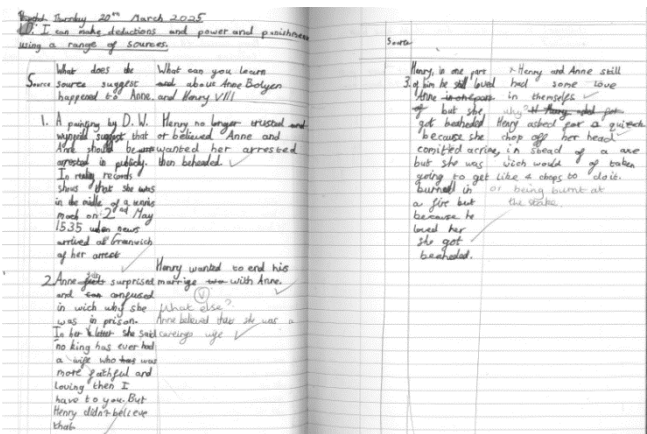 Thursday 20th March 2025
I can make deductions and power and punishment
using a range of sources.
Source
What does the
source suggest
happened to Anne.
What can you learn
about Anne Boleyn
and Henry VIII
1. A painting by D. W.
suggest that
Anne should be
arrested in publicly.
In reality records
shows that she was
in the middle of a tennis
match on 2nd May
1535 when news
arrived at Greenwich
of her arrest
Henry no longer trusted
or believed Anne and
wanted her arrested
then beheaded.
2. Anne surprised
and confused
in wich why she
was in prison.
In her letter she said
no king has ever had
a wife who was
more faithful and
loving then I
have to you. But
Henry didn't believe
that
Henry wanted to end his
marrige with Anne.
V
What else?
Anne believed that she was a
wife
Source
3.
Henry, in one part
of him he still loved
Anne
but she
got beheaded
because she
comitted a crime,
but she was
going to get
burned in
a fire but
because he
loved her
she got
beheaded.
Henry and Anne still
had some love
in themselves
why?
Henry asked for a quick
chop off her head
instead of a axe
wich would of taken
like 4 chops to do it.
or being burnt at
the stake.